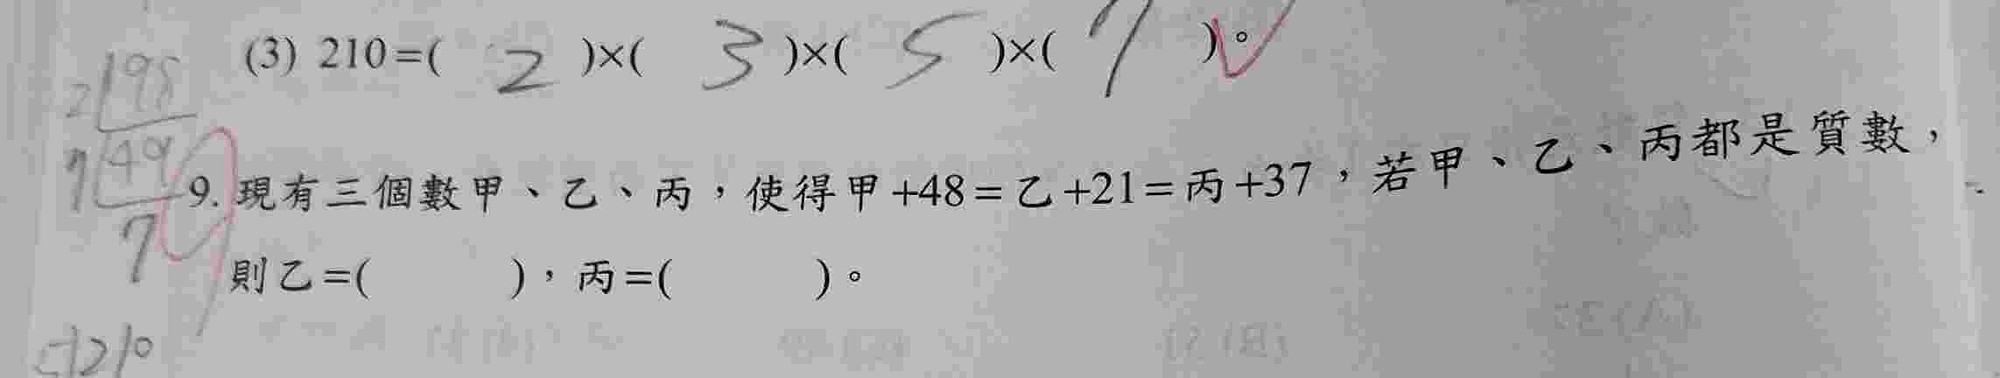 (3) 210=( 2 )×( 3 )×( 5 )×( 7 )。
2 98
7 49
7
9. 現有三個數甲、乙、丙，使得甲+48=乙+21=丙+37，若甲、乙、丙都是質數，
則乙=( )，丙=( )。
210